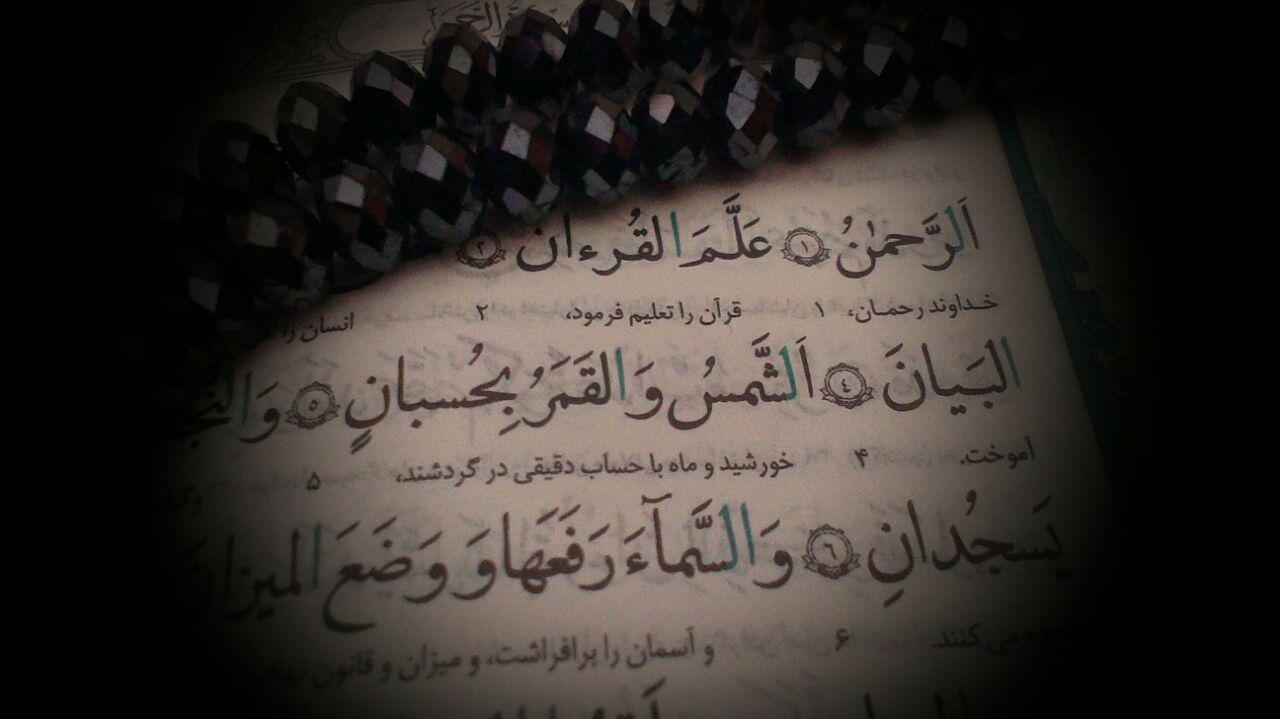 اَلرَّحمٰنُ ۱ عَلَّمَ القُرءانَ ۲
خداوند رحمان، ۱ قرآن را تعلیم فرمود، ۲ انسان را
البَیانَ ۴ اَلشَّمسُ وَالقَمَرُ بِحُسبانٍ ۵
آموخت. ۴ خورشید و ماه با حساب دقیقی در گردشند، ۵
یَسجُدانِ ۶ وَالسَّمآءَ رَفَعَها وَ وَضَعَ المیزانَ
می کنند. ۶ و آسمان را برافراشت، و میزان و قانون